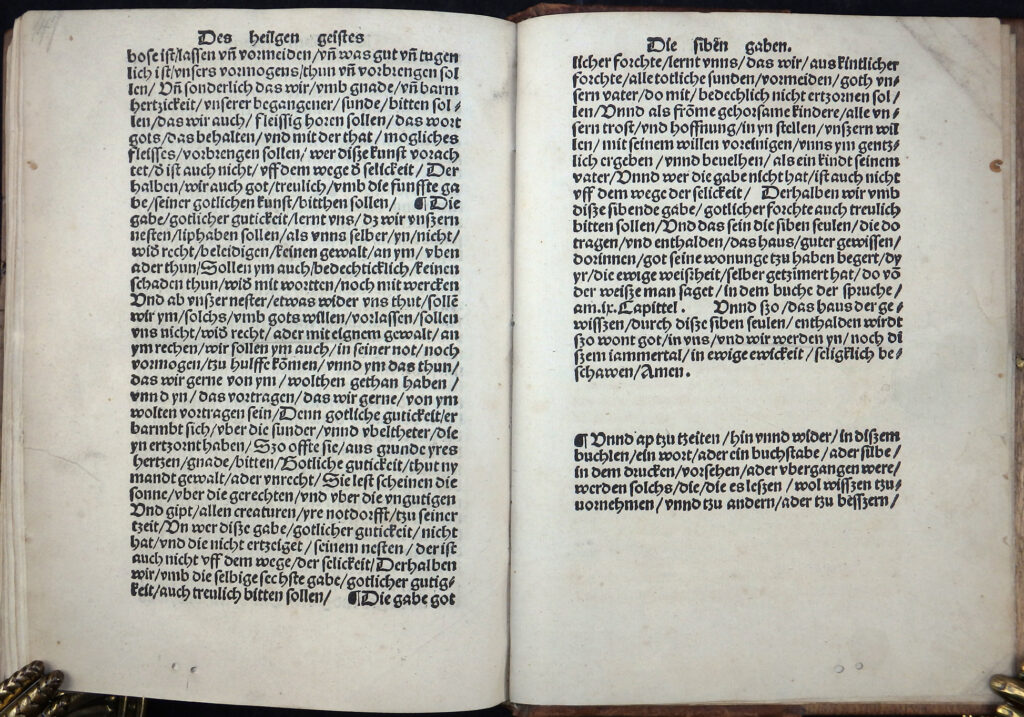 Des heilgen geistes
bose ist/lassen vn̄ vormeiden/vn̄ was gut vn̄ tugen
lich ist/vnsers vormogens/thun vn̄ vorbrengen sol
len/ Vn̄ sonderlich das wir/vmb gnade/vn̄ barm
hertzickeit/vnserer begangener/sunde/bitten sol⸗
len/das wir auch/ fleissig horen sollen/das wort
gots/das behalten/vnd mit der that/ mogliches
fleisses/vorbrengen sollen/wer disze kunst vorach
tet/d̄ ist auch nicht/vff dem wege d̄ selickeit/ Der
halben/wir auch got/treulich/vmb die funffte ga
be/seiner gotlichen kunst/bitthen sollen/ ¶Die
gabe/gotlicher gutickeit/lernt vns/dz wir vnszern
nesten/liphaben sollen/als vnns selber/yn/nicht/
wid̄ recht/beleidigen/keinen gewalt/an ym/vben
ader thun/Sollen ym auch/bedechticklich/keinen
schaden thun/wid̄ mit wortten/noch mit wercken
Vnd ab vnszer nester/etwas wider vns thut/sollē
wir ym/solchs/vmb gots willen/vorlassen/sollen
vns nicht/wid̄ recht/ader mit eignem gewalt/an
ym rechen/wir sollen ym auch/in seiner not/noch
vormogen/tzu hulffe kōmen/vnnd ym das thun/
das wir gerne von ym/wolthen gethan haben/
vnnd yn/das vortragen/das wir gerne/von ym
wolten vortragen sein/Denn gotliche gutickeit/er
barmbt sich/vber die sunder/vnnd vbeltheter/die
yn ertzornt haben/Szo offte sie/aus grunde yres
hertzen/gnade/bitten/Gotliche gutickeit/thut ny
mandt gewalt/ader vnrecht/Sie lest scheinen die
sonne/vber die gerechten/vnd vber die vngutigen
Vnd gipt/allen creaturen/yre notdorfft/tzu seiner
tzeit/Vn wer disze gabe/gotlicher gutickeit/nicht
hat/vnd die nicht ertzeiget/seinem nesten/der ist
auch nicht vff dem wege/der selickeit/Derhalben
wir/vmb die selbige sechste gabe/gotlicher gutig⸗
keit/auch treulich bitten sollen/ ¶Die gabe got
Die sibēn gaben.
licher forchte/lernt vnns/das wir/aus kintlicher
forchte/alle totliche sunden/vormeiden/goth vn⸗
sern vater/do mit/bedechlich nicht ertzornen sol⸗
len/Vnnd als frōme gehorsame kindere/alle vn⸗
sern trost/vnd hoffnung/in yn stellen/vnszern wil
len/mit seinem willen voreinigen/vnns ym gentz⸗
lich ergeben/vnnd beuelhen/als ein kindt seinem
vater/Vnnd wer die gabe nicht hat/ist auch nicht
vff dem wege der selickeit/ Derhalben wir vmb
disze sibende gabe/gotlicher forchte auch treulich
bitten sollen/Vnd das sein die siben seulen/die do
tragen/vnd enthalden/das haus/guter gewissen/
dorinnen/got seine wonunge tzu haben begert/dy
yr/die ewige weiszheit/selber getzimert hat/do vō
der weisze man saget/in dem buche der spruche/
am.ix.Capittel. Vnnd szo/das haus der ge⸗
wisszen/durch disze siben seulen/enthalden wirdt
szo wont got/in vns/vnd wir werden yn/noch di
szem iammertal/in ewige ewickeit/seligklich be⸗
schawen/Amen.
¶Vnnd ap tzu tzeiten/hin vnnd wider/in diszem
buchlen/ein wort/ader ein buchstabe/ader silbe/
in dem drucken/vorsehen/ader vbergangen were/
werden solchs/die/die es leszen/wol wisszen tzu⸗
uornehmen/vnnd tzu andern/ader tzu besszern/